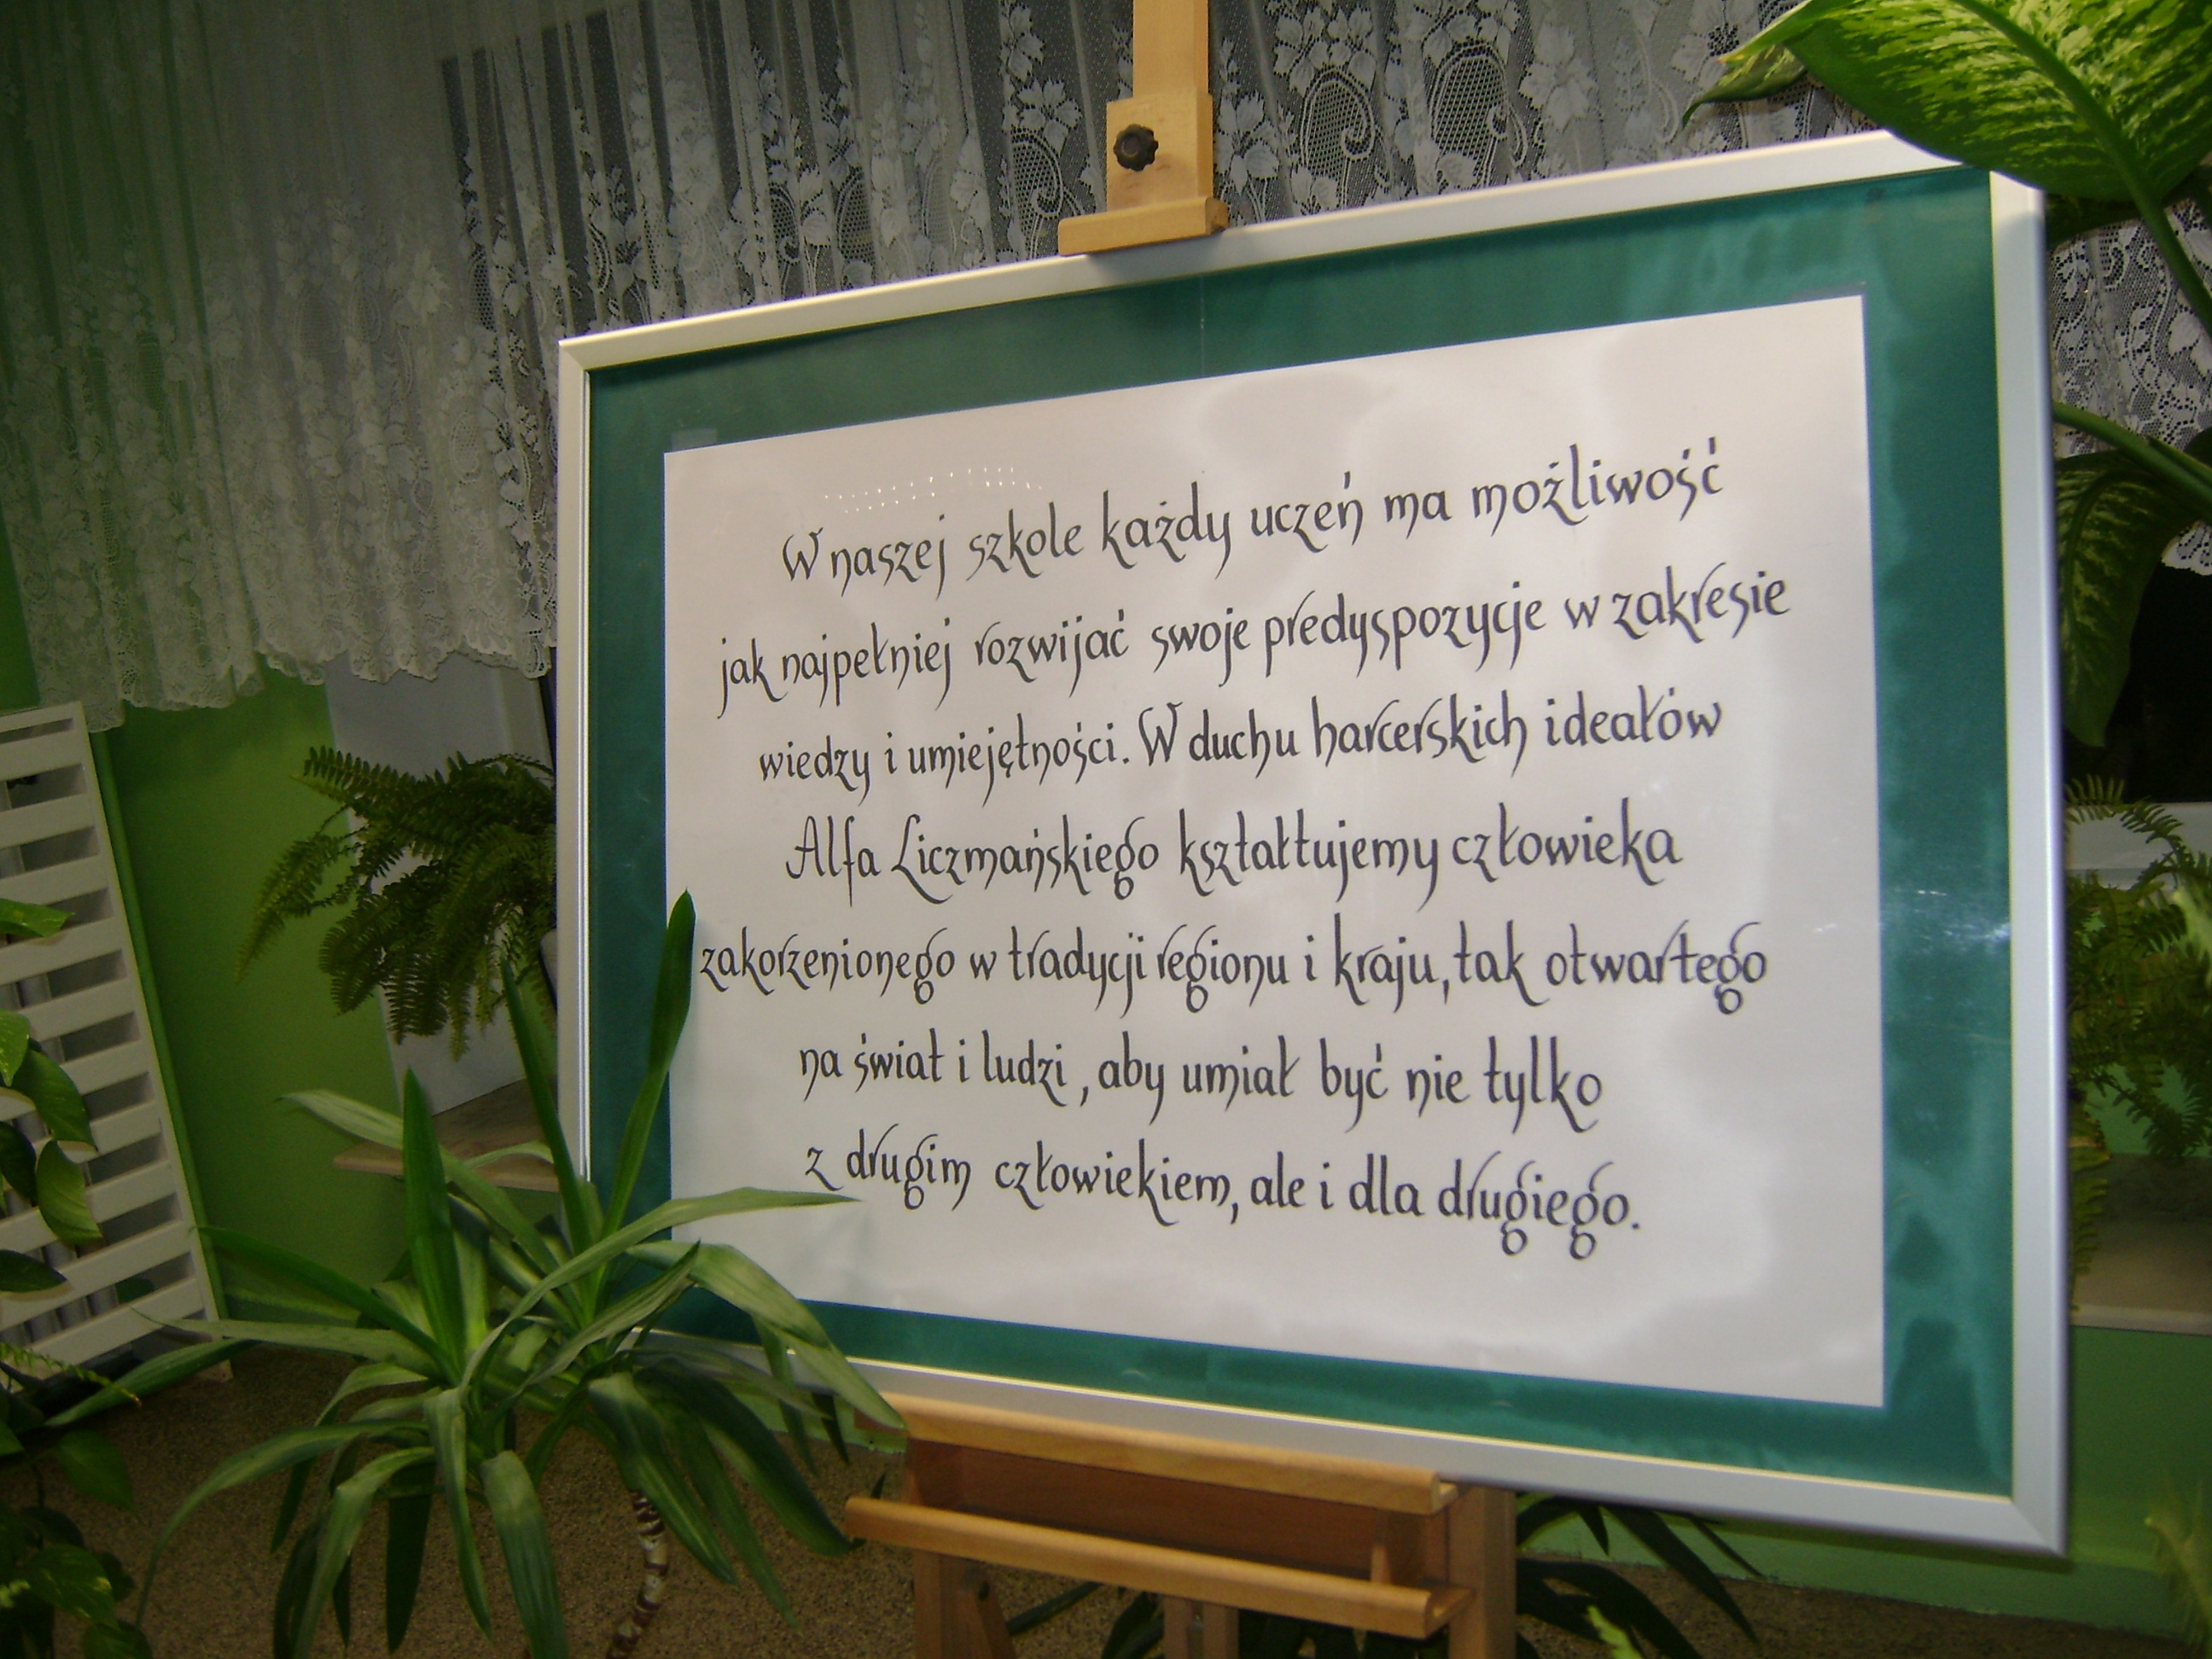 W naszej szkole każdy uczeń ma możliwość
jak najpełniej rozwijać swoje predyspozycje w zakresie
wiedzy i umiejętności. W duchu harcerskich ideałów
Alfa Liczmańskiego kształtujemy człowieka
zakorzenionego w tradycji regionu i kraju, tak otwartego
na świat i ludzi, aby umiał być nie tylko
z drugim człowiekiem, ale i dla drugiego.